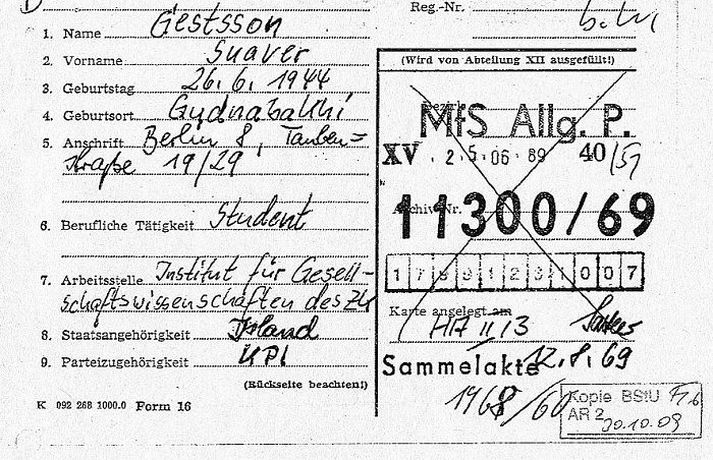 Reg.-Nr.
1. Name Gestsson
2. Vorname Svaver
3. Geburtstag 26. 6. 1944
4. Geburtsort Gudnabakki
5. Anschrift Berlin 8, Tauben=
straße 19/29
6. Berufliche Tätigkeit Student
7. Arbeitsstelle Institut für Gesell-
schaftswissenschaften des ZK
8. Staatsangehörigkeit Island
9. Parteizugehörigkeit KPI
(Rückseite beachten!)
K 092 268 1000.0 Form 16
(Wird von Abteilung XII ausgefüllt!)
MfS Allg. P.
XV 25.06.89 40/51
Archiv-Nr.
11300/69
178912310007
Karte angelegt am
HA II/3
Sammelakte 12.8.69
1968/60
Kopie BStU
AR 2
20.10.09